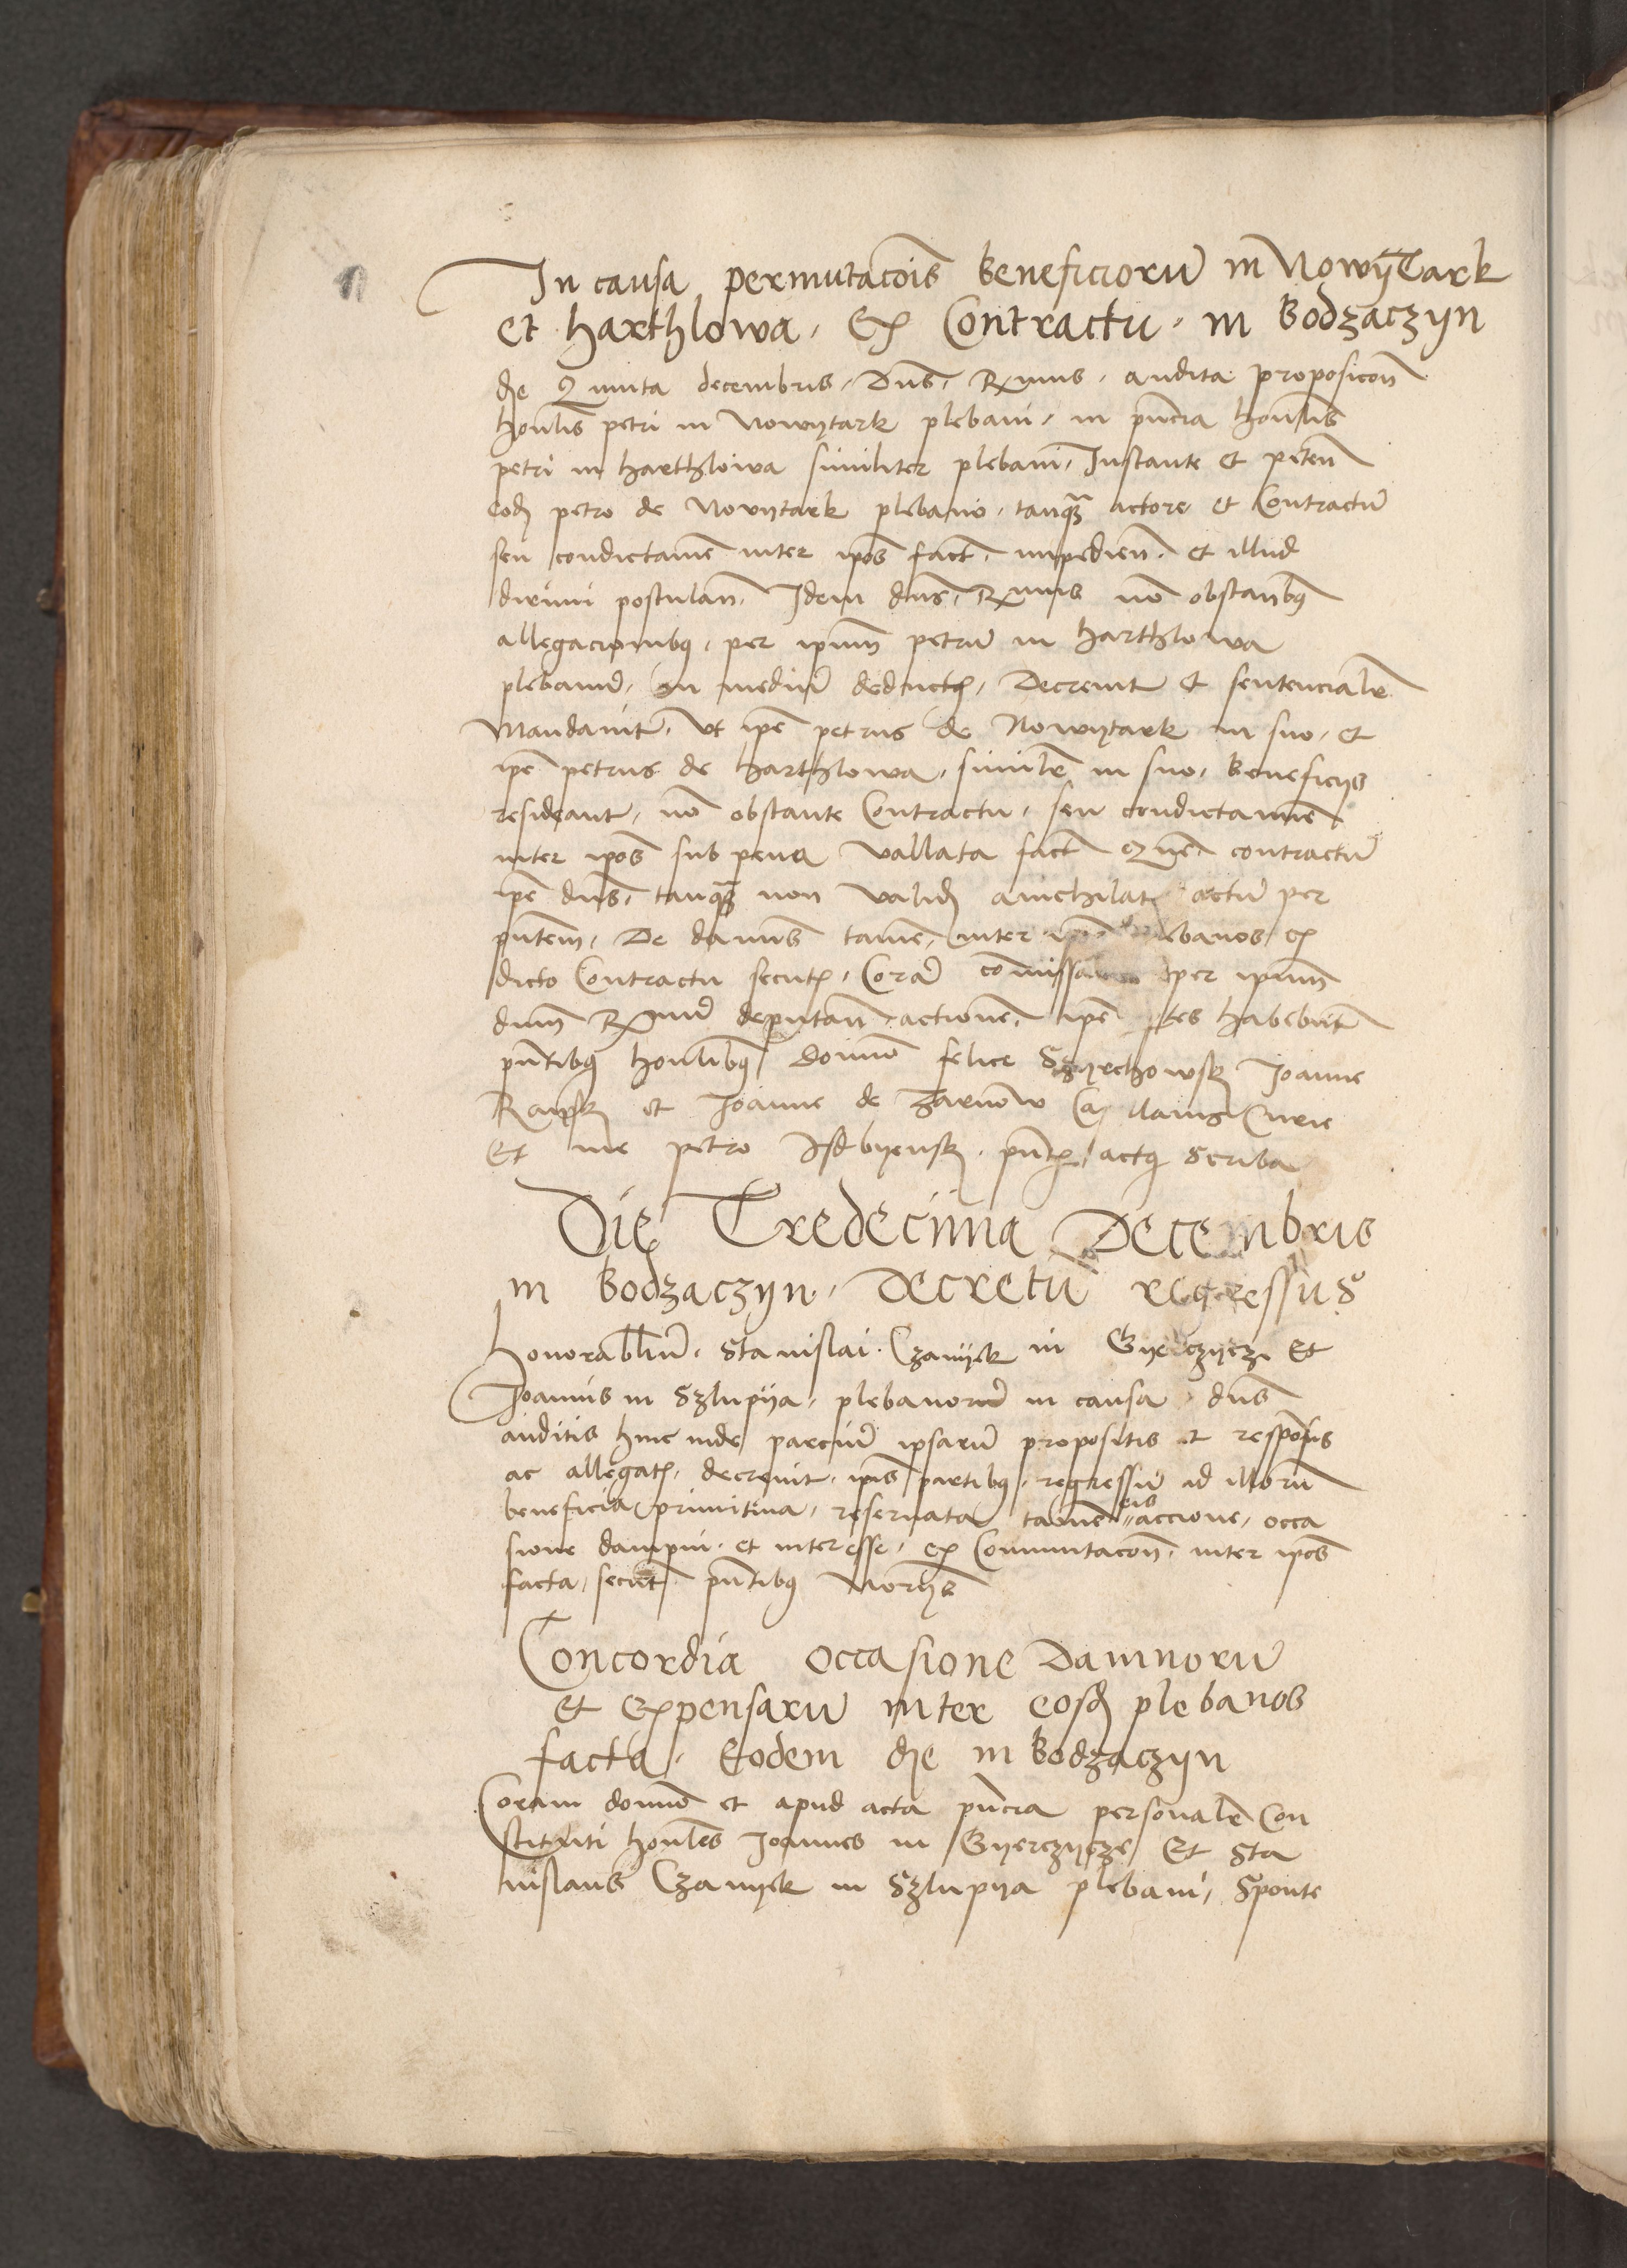 In causa permutacois beneficioru in NowyTark
et harthlowa. Ex Contractu. in bodzaczyn
die Quinta decembris. Dns. Rmus. audita proposicon
honlis petri in Nowytark plebani. in pncia honlis
petri in harthlowa similiter plebani. Instante et peten
eod petro de Nowytark plebano. tanq actore et Contractu
seu condictame inter ipos fact. impedien. et illud
dirimi postulan. Idem dns. Rmus no obstanbq
allegacionibq. per ipum petru in harthlowa
plebanu. In mediu deduct. Decrevit et sentencialr
Mandavit. Ut ipe petrus de Nowytark in suo. et
ipe petrus de harthlowa. similr in suo. beneficijs
resideant. no obstante Contractu. seu condictamine
inter ipos sub pena vallata fact contractu
ipe dns. tanq non valid anichilat actu per
pntem. De damnis tame. inter plebanos ex
dicto Contractu secut. Cora per ipum
dnm Rmu deputan actione. ipe ptes habebut
pntibq honlibq domino felice Szyrchowsk Joanne
Raysk et Joanne de Zarnow Ca llanis Curie
Et me petro Isdbyensk. pnt actq scriba
Die Tredecima Decembris
in bodzaczyn. Decretu regressus
honorabiliu. Stanislai. Czanyek in Gyerczycz. Et
Joannis in Szlupya. plebanoru in causa. dns
auditis hinc inde parciu ipsaru propositis et responsis
ac allegat. decrevit. ipis partibq. regressu ad illoru
beneficia primitiva. reservata tame eis accione. occa
sione dampni. et interesse. ex Comutacon. inter ipos
facta. secut pntibq
Concordia occasione Damnoru
et Expensaru inter eosd plebanos
facta. Eodem die in bodzaczyn
Coram domino et apud acta pncia personalr Con
stituti honles Joannes in Gyerczycze Et Sta
nislaus Czanyek in Szlupya plebani. Sponte